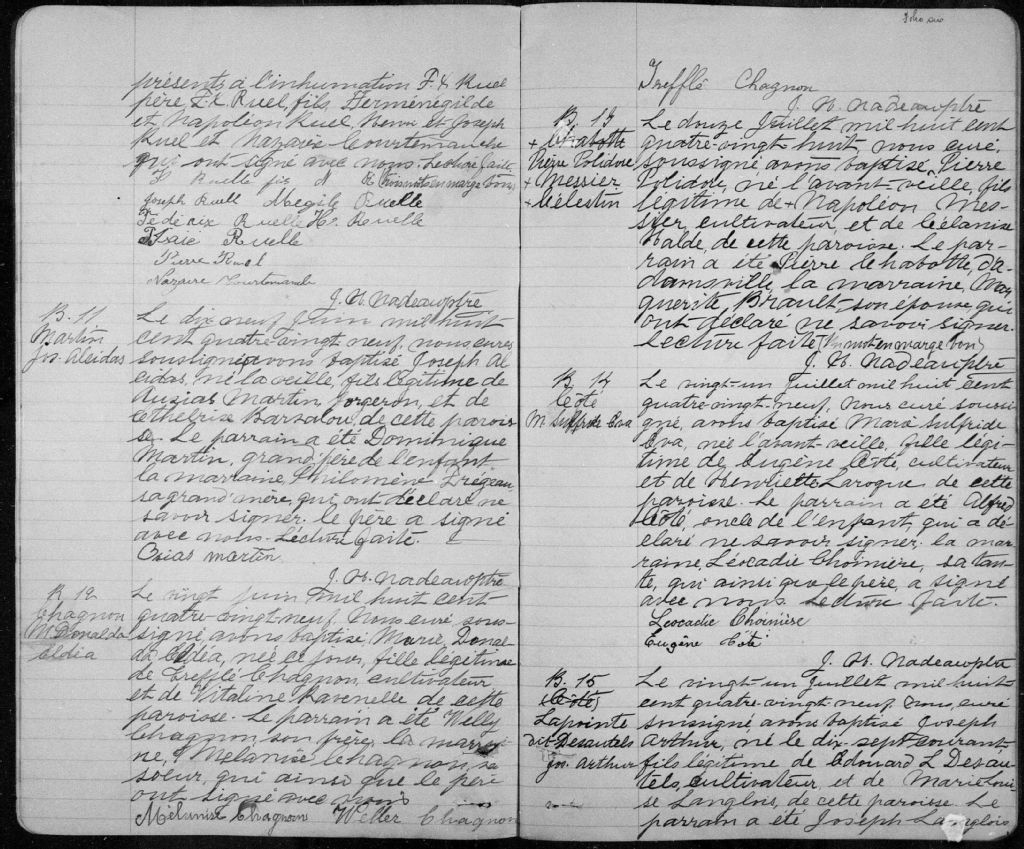 présents à l'inhumation F. X Ruel
père, F. X. Ruel, fils Herménégilde
et Napoléon Ruel, Henri et Joseph
Ruel et Nazaire Courtemanche
qui ont signé avec nous. Lecture faite.
X Ruelle fis N R (trois mots en marge bons)
Joseph Ruell Megile Ruelle
Fédéric Ruelle Hi. Ruelle
Isaie Ruelle
Pierre Ruel
Nazaire Courtemanche
J. H. Nadeau ptre
B. 11
Martin
Jos. Alcidas
Le dix neuf Juin mil huit
cent quatre-vingt neuf, nous curé
soussigné avons baptisé Joseph Al
cidas, né la veille, fils légitime de
Ausias Martin forgeron, et de
Ethelrise Barsalou, de cette parois
se. Le parrain a été Dominique
Martin, grand père de l'enfant
la marraine, Philomène Prégeau
sa grand'mère, qui ont déclaré ne
savoir signer. le père a signé
avec nous. Lecture faite.
Osias martin
J. H. Nadeau ptre
B 12
Chagnon
M. Donalda
Eldia
Le vingt juin mil huit cent
quatre-vingt-neuf. Nous curé sous-
signé, avons baptisé Marie, Donal
da Eldia, née ce jour, fille légitime
de Trefflé Chagnon, cultivateur
et de Vitaline Ravenelle de cette
paroisse. Le parrain a été Welly
Chagnon, son frère, la marrai
ne, Mélanise Chagnon, sa
soeur, qui ainsi que le père
ont signé avec nous
Mélanise Chagnon Weller Chagnon
Trefflé Chagnon
J. H. Nadeau ptre
B. 13
+ Chabotte
Pierre Polidore
+ Messier
+ Célestin
Le douze Juillet mil huit cent
quatre-vingt huit, nous curé,
soussigné, avons baptisé, Pierre
Polidore, né l'avant-veille, fils
légitime de + Napoléon Mes-
sier, cultivateur, et de Célanise
Halde, de cette paroisse. Le par-
rain a été Pierre Chabotte, d'A
damsville, la marraine, Mar
guerite Brault, son épouse, qui
ont déclaré ne savoir signer.
Lecture faite (Un mot en marge bon)
J. H. Nadeau ptre
B. 14
Côté
M Sulfride Eva
Le vingt-un Juillet mil huit cent
quatre-vingt-neuf, Nous curé soussi
gné, avons baptisé Marie Sulfride
Eva, née l'avant-veille, fille légi-
time de Eugène Côté, cultivateur
et de Henriette Laroque de cette
paroisse. Le parrain a été Alfred
Côté, oncle de l'enfant, qui a dé-
claré ne savoir signer; la mar
raine, Léocadie Choinière, sa tan
te, qui ainsi que le père, a signé
avec nous. Lecture faite.
Léocadie Choinière
Eugène Côté
J. H. Nadeau ptre
B. 15
(Côté)
Lapointe
dit Desautels
Jos. Arthur
Le vingt-un Juillet mil huit
cent quatre-vingt neuf, nous, curé
soussigné, avons baptisé Joseph
Arthur, né le dix-sept courant
fils légitime de Edouard L Desau
tels, cultivateur et de Marie Loui
se Langlois, de cette paroisse. Le
parrain a été Joseph Langlois